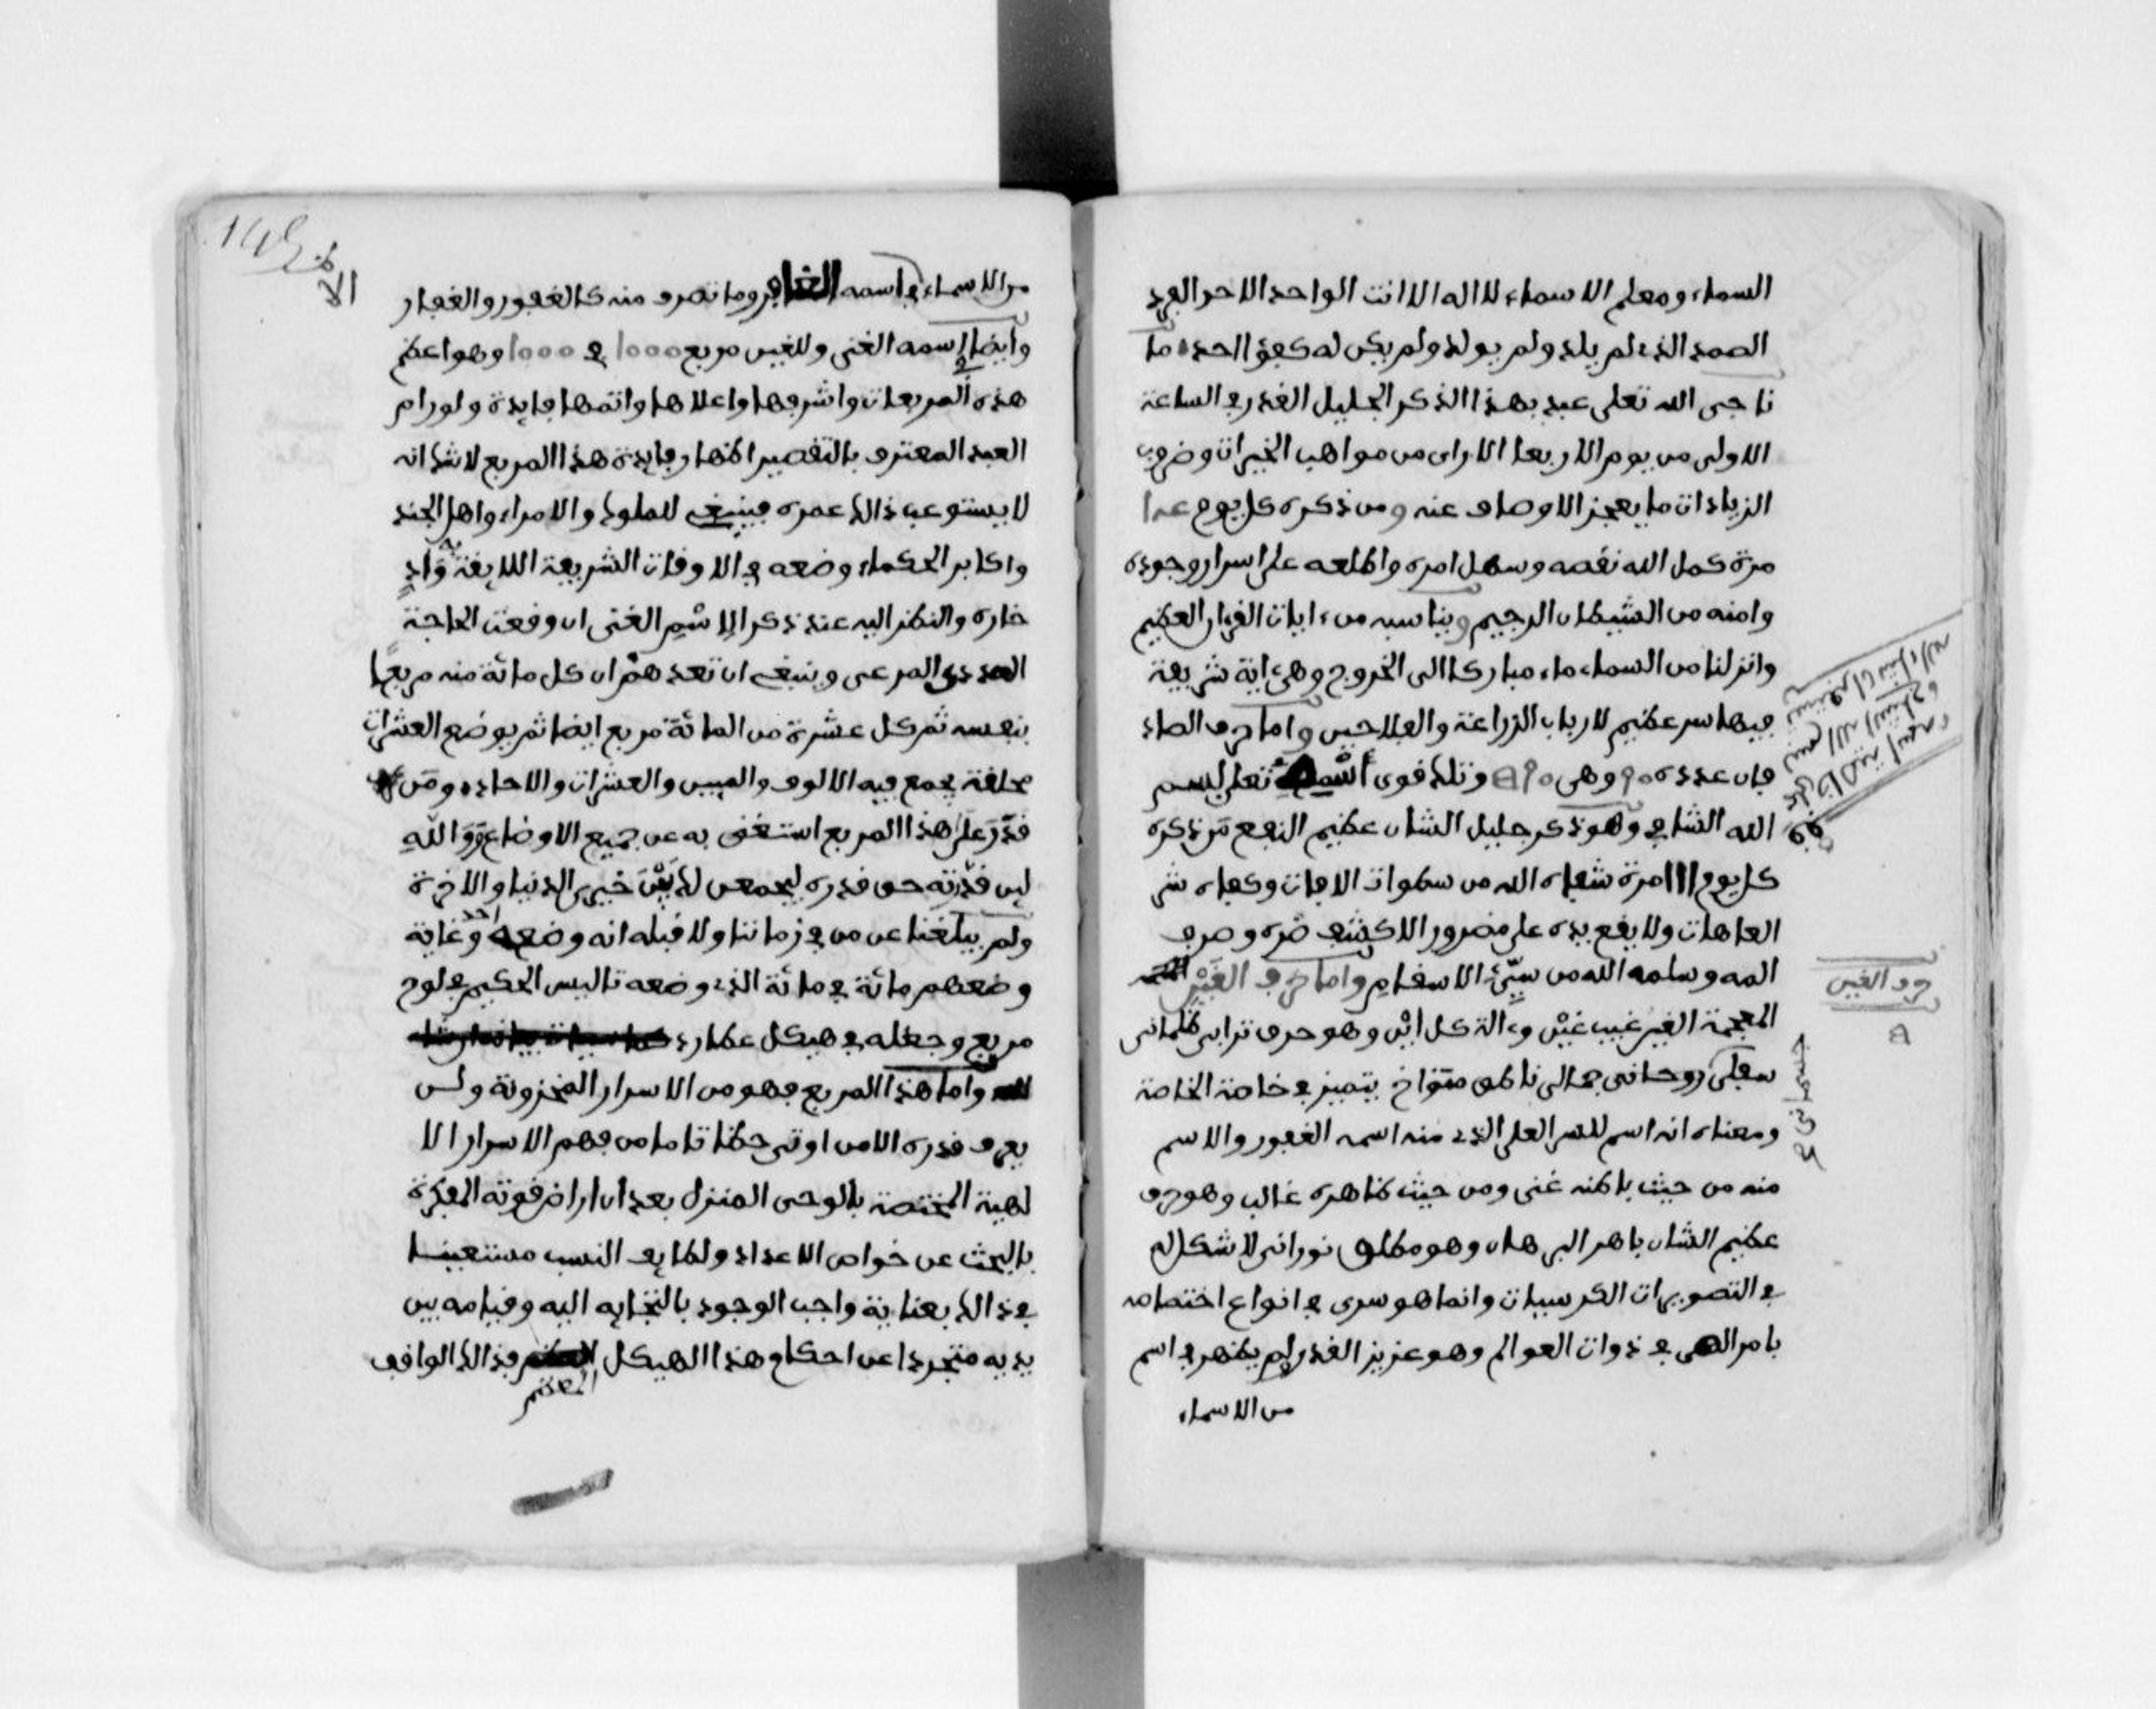 السماء ومعلم الاسماء لا اله الا انت الواحد الاحد الفرد
الصمد الذي لم يلد ولم يولد ولم يكن له كفؤا احد ما
ناجى الله تعلى عبد بهذا الذكر الجليل القدر في الساعة
الاولى من يوم الاربعا الا راى من مواهب الخيرات وضروب
الزيادات ما يعجز الاوصاف عنه ومن ذكره كل يوم عدا
مرة كمل الله نقصه وسهل امره واطلعه على اسرار وجوده
وامنه من الشيطان الرجيم ويناسبه من ءايات القرءان العظيم
وانزلنا من السماء ماء مباركا الى الخروج وهي ءاية شريفة
فيها سر عظيم لارباب الزراعة والفلاحين واما حرف الصاد
فان عدده ٩٠ وهي وتلك قوى تعلى بسم
الله الشافي وهو ذكر جليل الشان عظيم النفع من ذكره
كل يوم مرة شفاه الله من سطوات الافات وكفاه شر
العاهات ولا يقع يده على مضرور الا كشف ضره وصرف
المه وسلمه الله من سيئ الاسقام واما حرف الغين
المعجمة الغين غيب غين وءالة كل اين وهو حرف ترابي ظلماني
سفلي روحاني جمالي ناطق متواخ يتميز في خاصة الخاصة
ومعناه انه اسم للسر العلى الذي منه اسمه الغفور والاسم
منه من حيث باطنه غني ومن حيث ظاهره غالب وهو حرف
عظيم الشان باهر البرهان وهو مطلق نوراني لا شكل له
في التصويرات الكرسييات وانما هو سرى في انواع اختصاصه
بامر الهي في ذوات العوالم وهو عزيز القدر لم يظهر في اسم
من الاسماء
حرف الغين
من الاسماء في اسمه الغافر وما تصرف منه كالغفور والغفار
وايضا اسمه الغني وللغين مربع ١٠٠٠ في ١٠٠٠ وهو اعظم
هذه المربعات واشرفها واعلاها واتمها فايدة ولو رام
العبد المعترف بالتقصير اظهار فايدة هذا المربع لا شك انه
لا يستوعب ذالك عمره فينبغي للملوك والامراء واهل الجند
واكابر الحكماء وضعه في الاوقات الشريفة اللايقة به واد
خاره والنظر اليه عند ذكر الاسم الغني ان وقعت الحاجة
العددي المرعي وينبغي ان تعد هم ان كل مائة منه مربعا
بنفسه ثم كل عشرة من المائة مربع ايضا ثم يوضع العشرات
مخلفة يجمع فيه الالوف والميين والعشرات والاحاد ومن
قدر على هذا المربع استغنى به عن جميع الاوضاع ووالله
لين قدرته حق قدره ليجمعن لك بين خيري الدنيا والاخرة
ولم يبلغنا عن من في زماننا ولا قبله انه وضعه احد وغاية
وضعهم مائة في مائة الذي وضعه تاليس الحكيم في لوح
مربع وجعله في هيكل عطارد
واما هذا المربع فهو من الاسرار المخزونة وليس
يعرف قدره الا من اوتي حظا تاما من فهم الاسرار الا
لهية المختصة بالوحي المنزل بعد ان اراض قوته المفكرة
بالبحث عن خواص الاعداد ولطايف النسب مستعينا
في ذالك بعناية واجب الوجود بالتجايه اليه وقيامه بين
يديه متجردا عن احكام هذا الهيكل فذالك الواقف
المظلم